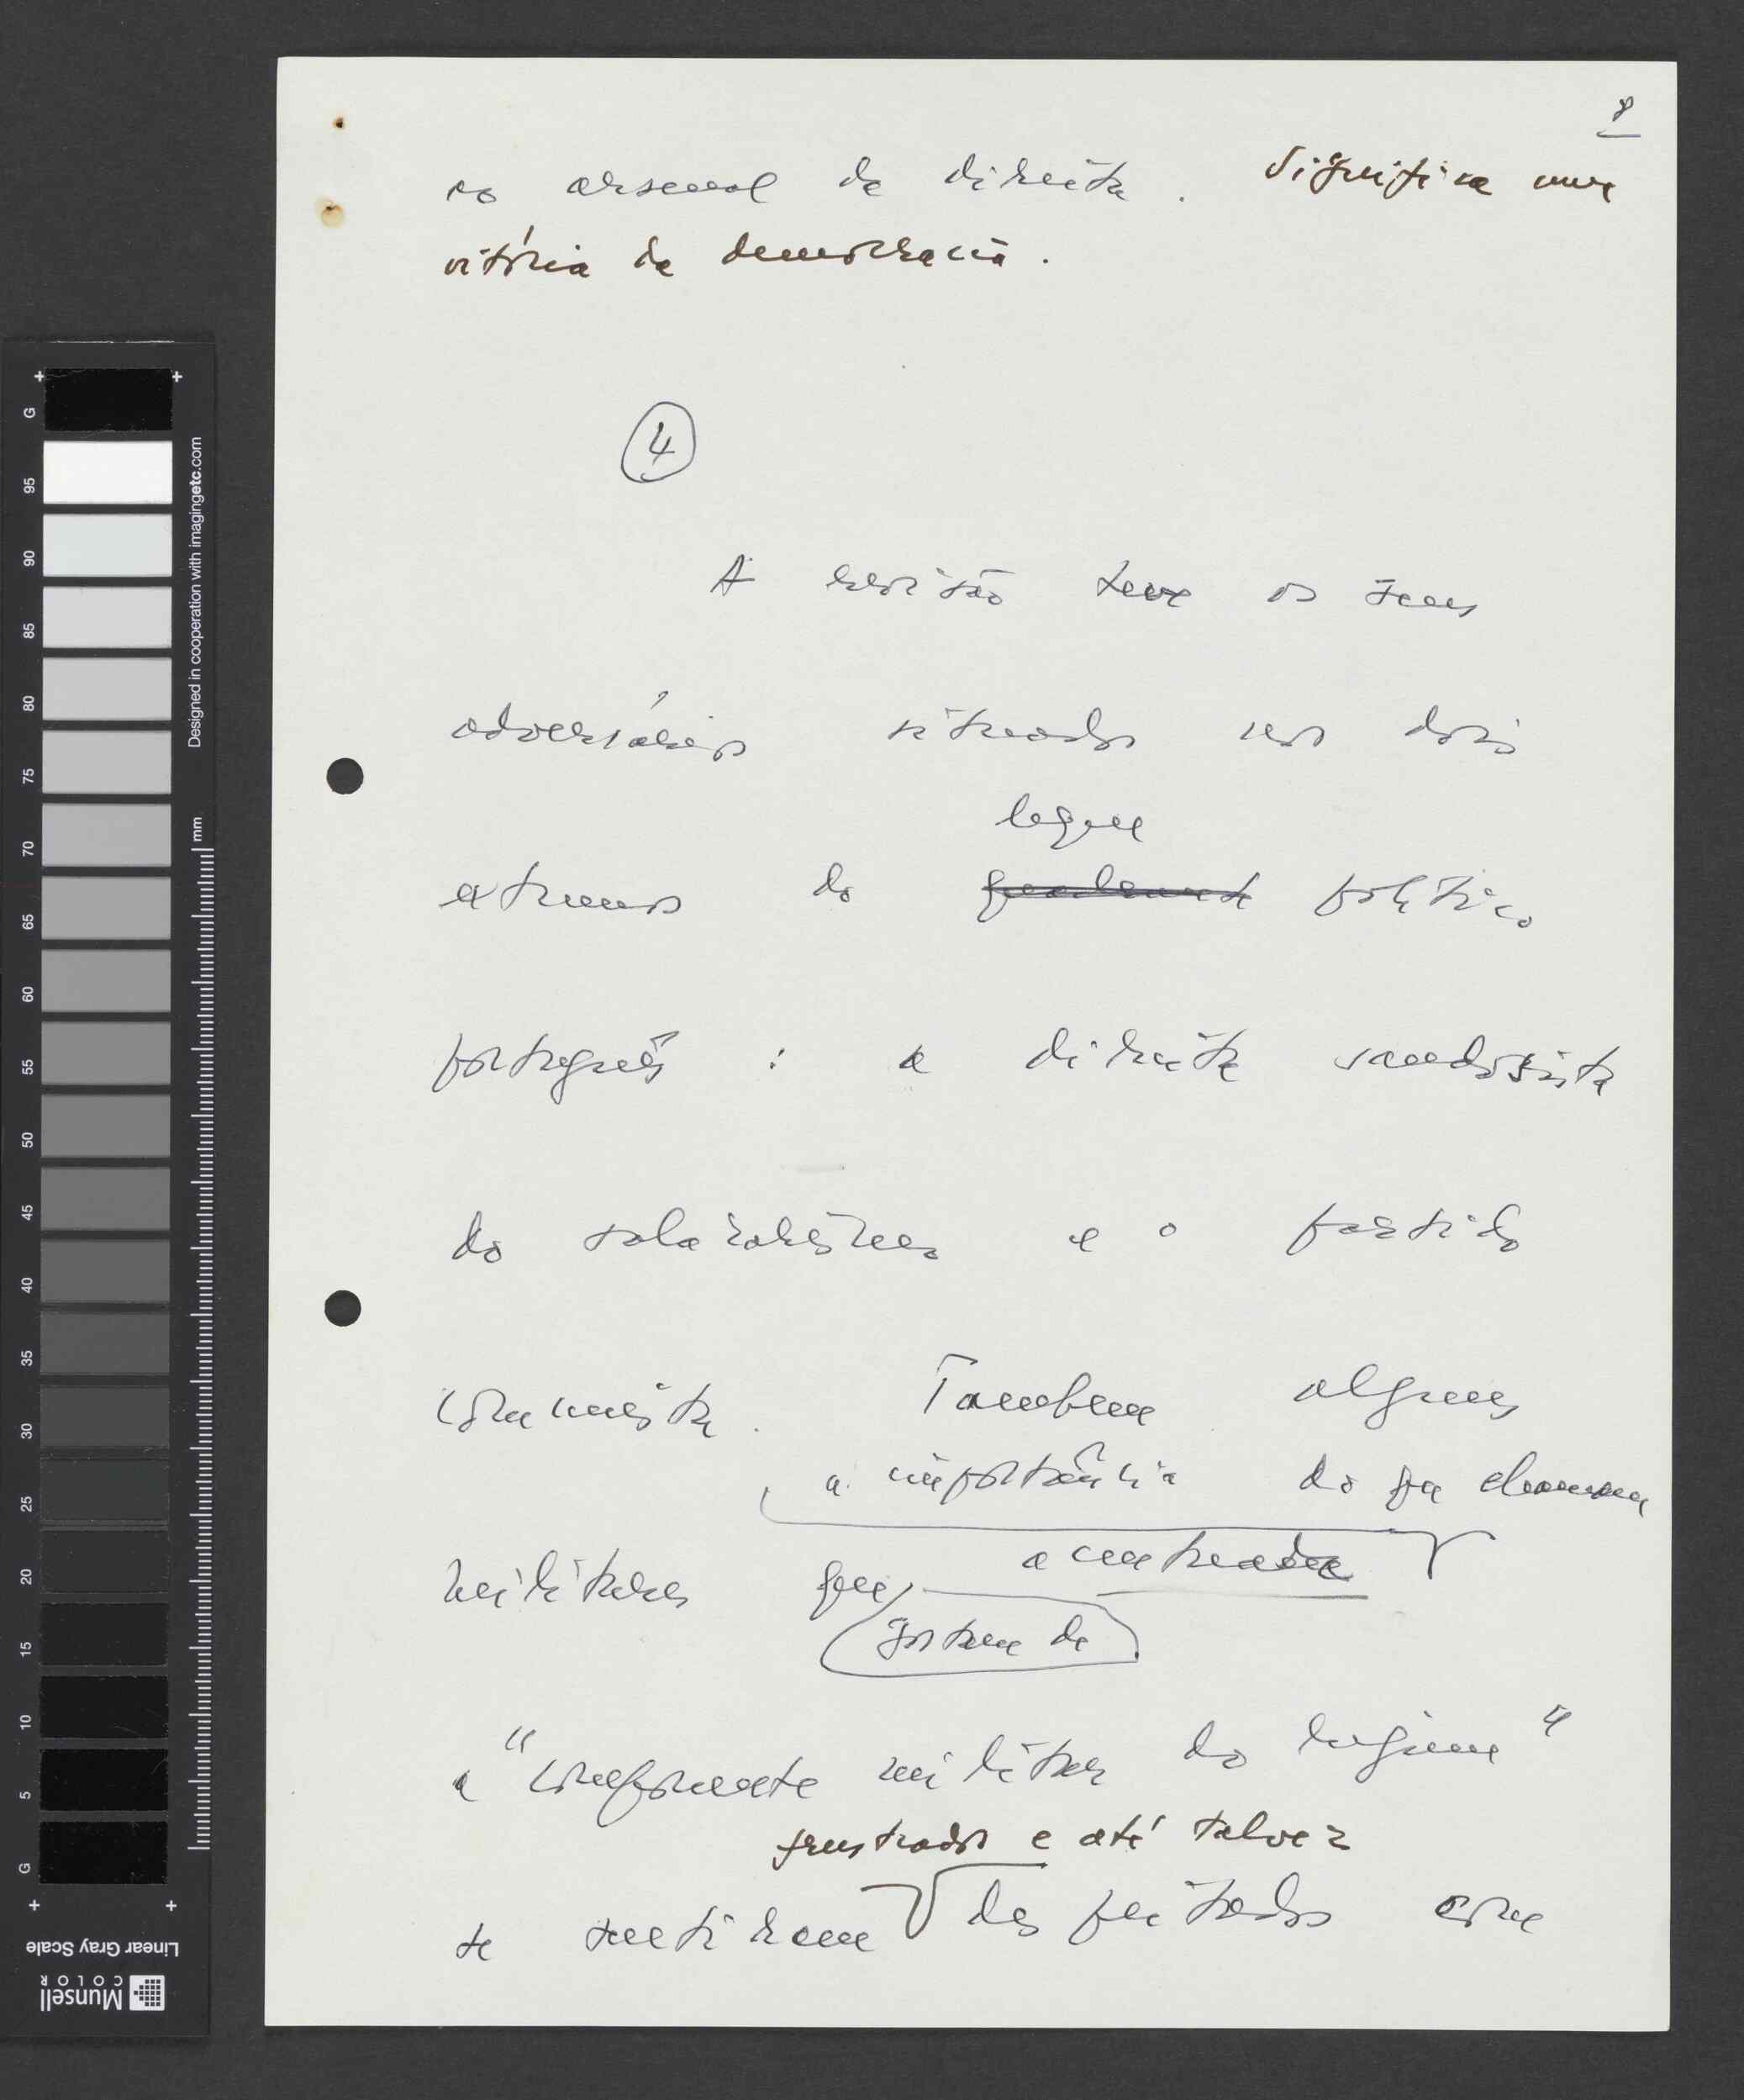 8
ao arsenal da direita. Significa uma
vitória da democracia.
4
A revisão teve os seus
adversários situados nos dois
leque
extremos do quadrante político
português : a direita saudosista
do salazarismo e o partido
comunista. Também alguns
a importância do que chamam
militares que, acentuada
gostam de
a "componente militar do regime"
frustrados e até talvez
se sentiram despeitados com
G 95 90 85 80 75 70 65 60 55 50 45 40 35 30 25 20 15 10 5 G
mm
Designed in cooperation with imagingetc.com
Linear Gray Scale
Munsell
COLOR